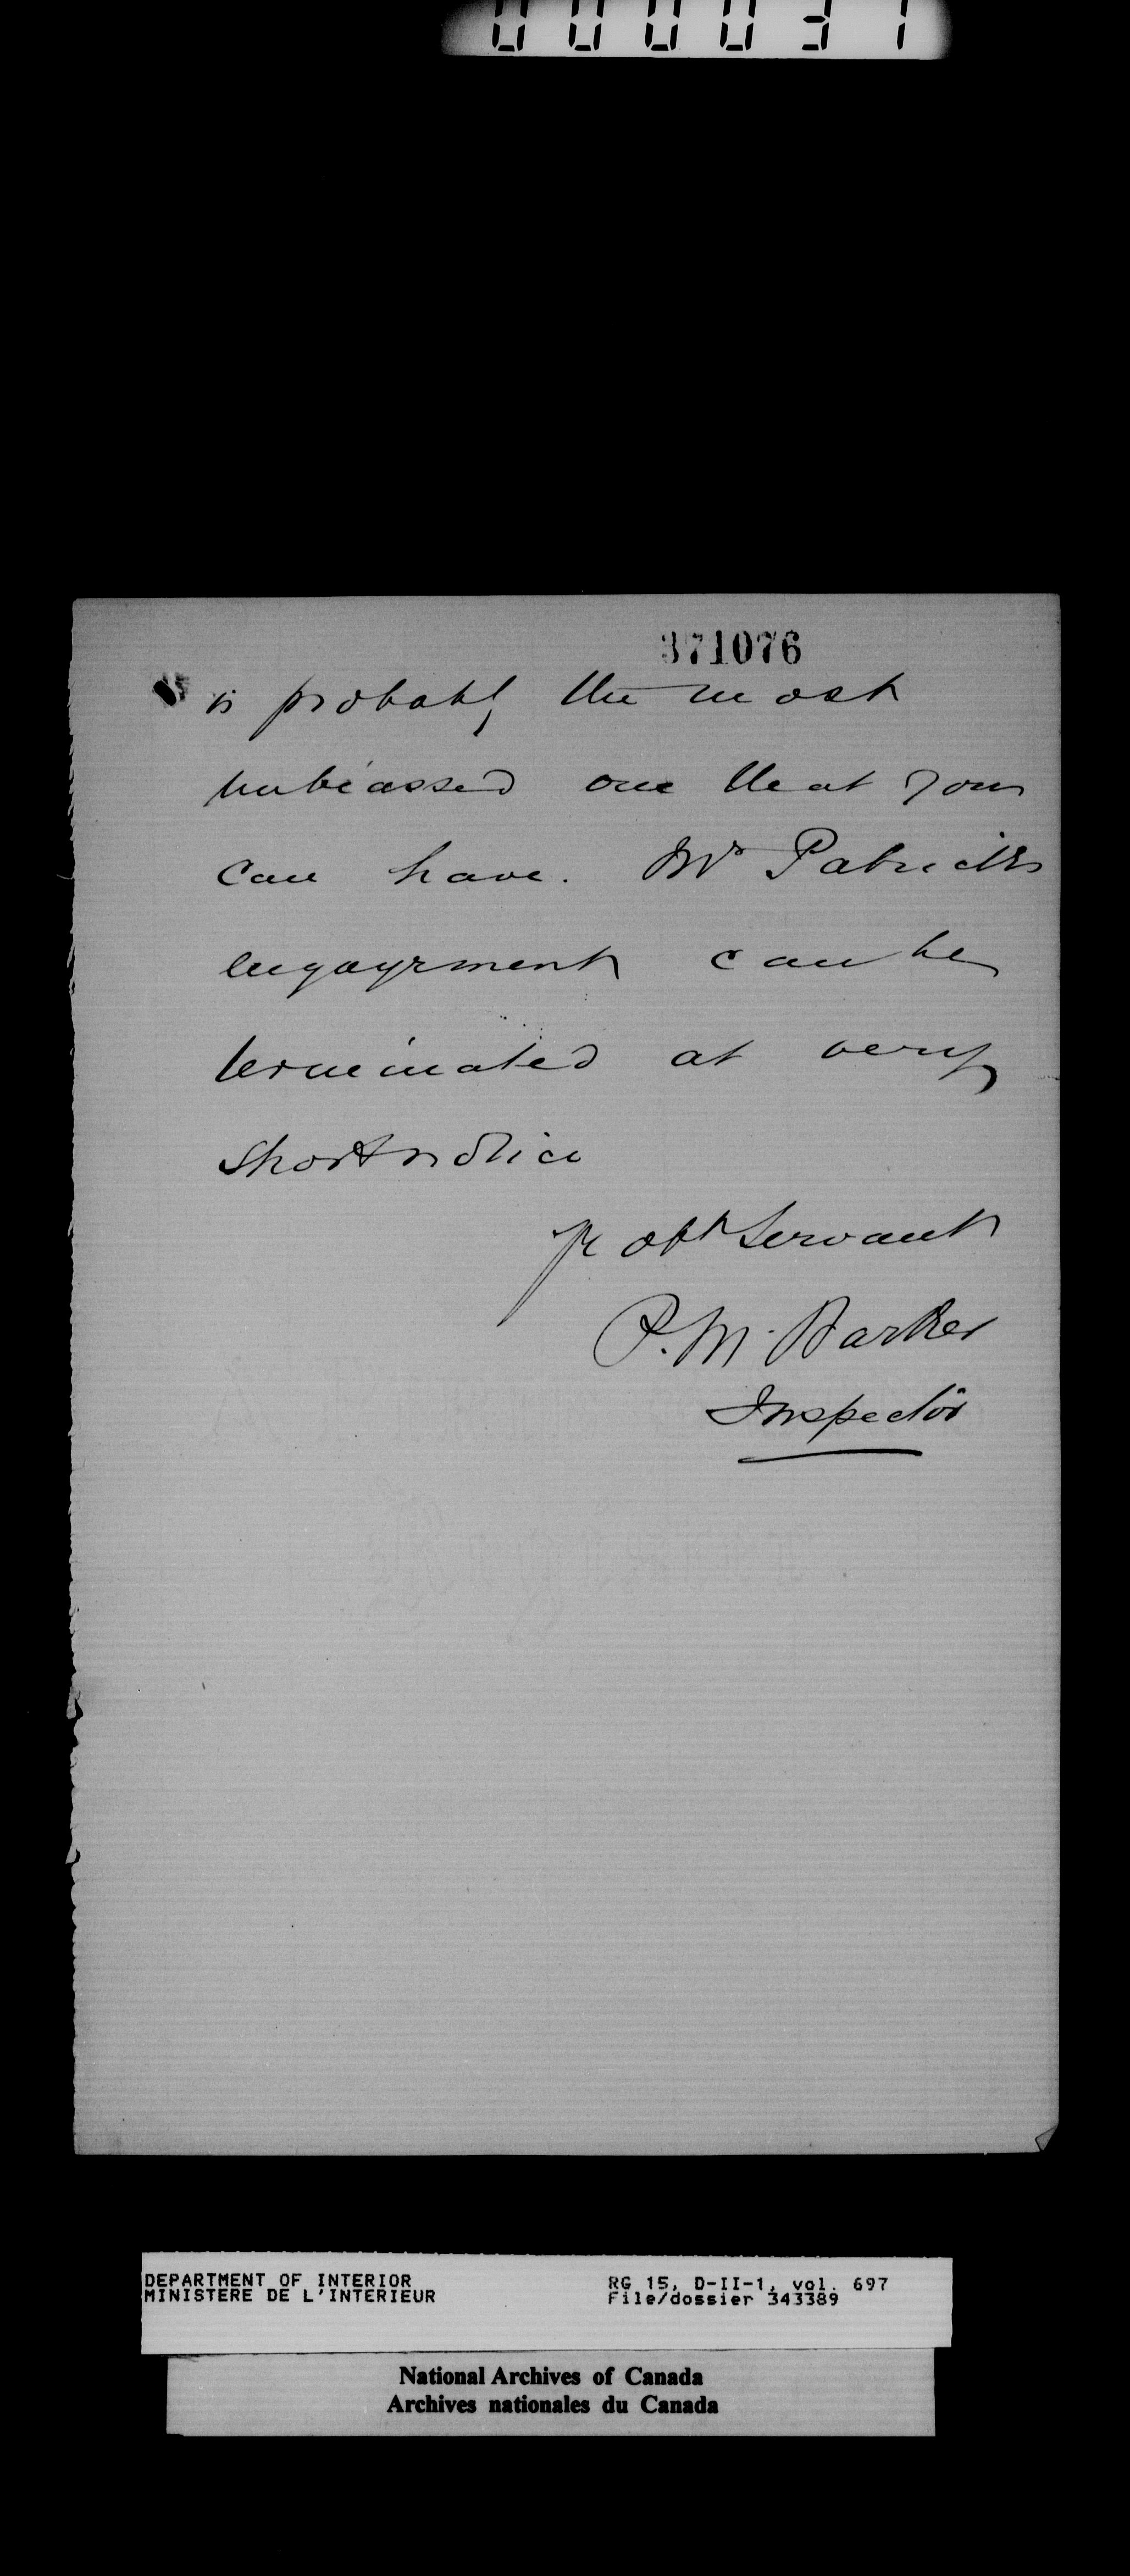 000031
371076
is probably the most
unbiassed one that you
can have. Mr Patricks
engagement can be
terminated at very
short notice
yr obt Servant
P. M. Barker
Inspector
DEPARTMENT OF INTERIOR
MINISTERE DE L'INTERIEUR
RG 15, D-II-1, vol. 697
File/dossier 343389
National Archives of Canada
Archives nationales du Canada